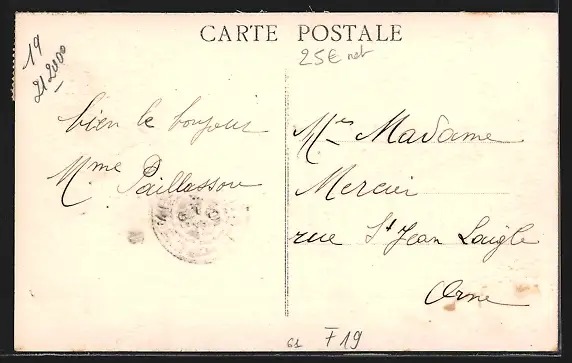 CARTE POSTALE
25€ net
19
21 2000
bien le bonjour
Mme Paillasson
Mr Madame
Mercier
rue St Jean Laigle
Orne
61
F19